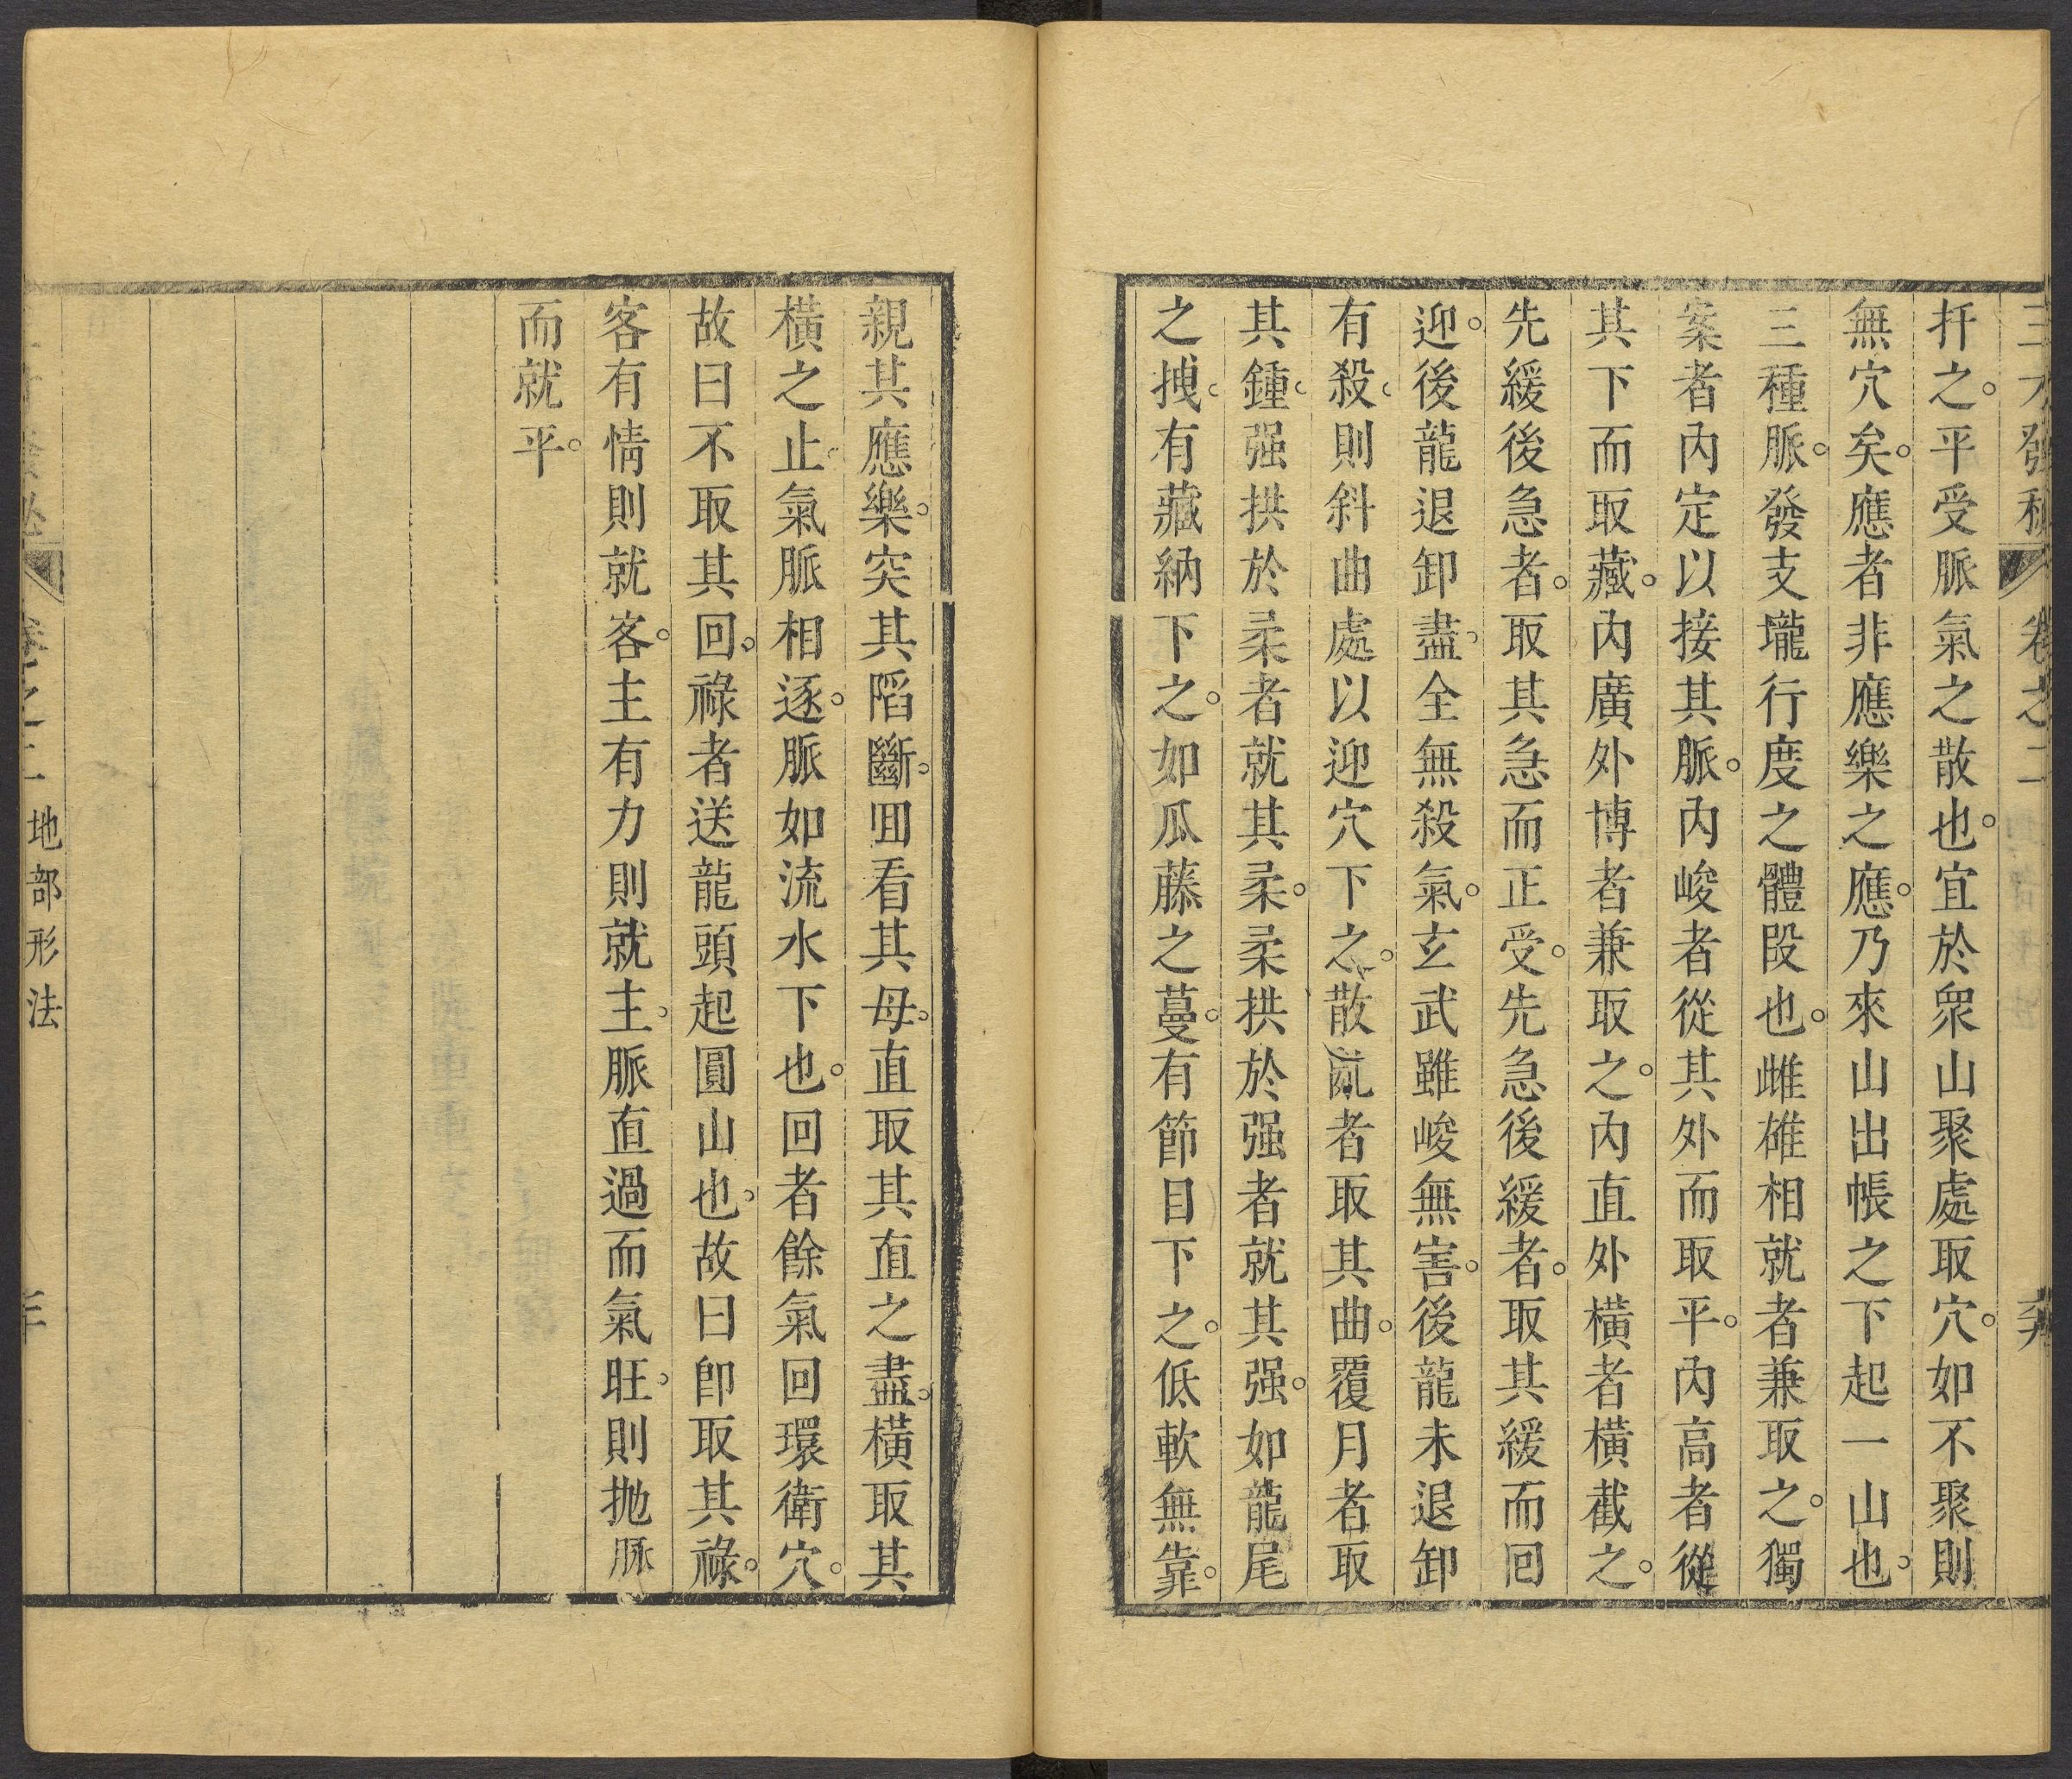 三才發秘 卷之二
扦之。平受脈氣之散也。宜於眾山聚處取穴。如不聚則
無穴矣。應者非應樂之應。乃來山出帳之下起一山也。
三種脈。發支壠行度之體段也。雌雄相就者兼取之。獨
案者內定以接其脈。內峻者從其外而取平。內高者從
其下而取藏。內廣外博者兼取之。內直外橫者橫截之。
先緩後急者。取其急而正受。先急後緩者。取其緩而回
迎。後龍退卸盡。全無殺氣。玄武雖峻無害。後龍未退卸
有殺。則斜曲處以迎穴下之。散亂者取其曲。覆月者取
其鍾。强拱於柔者就其柔。柔拱於强者就其强。如龍尾
之拽。有藏納下之。如瓜藤之蔓。有節目下之。低軟無靠。
親其應樂。突其陷斷。回看其母。直取其直之盡。橫取其
橫之止。氣脈相逐。脈如流水下也。回者餘氣回環衛穴。
故曰不取其回。祿者送龍頭起圓山也。故曰即取其祿。
客有情則就客。主有力則就主。脈直過而氣旺。則抛脉
而就平。
卷之二 地部形法